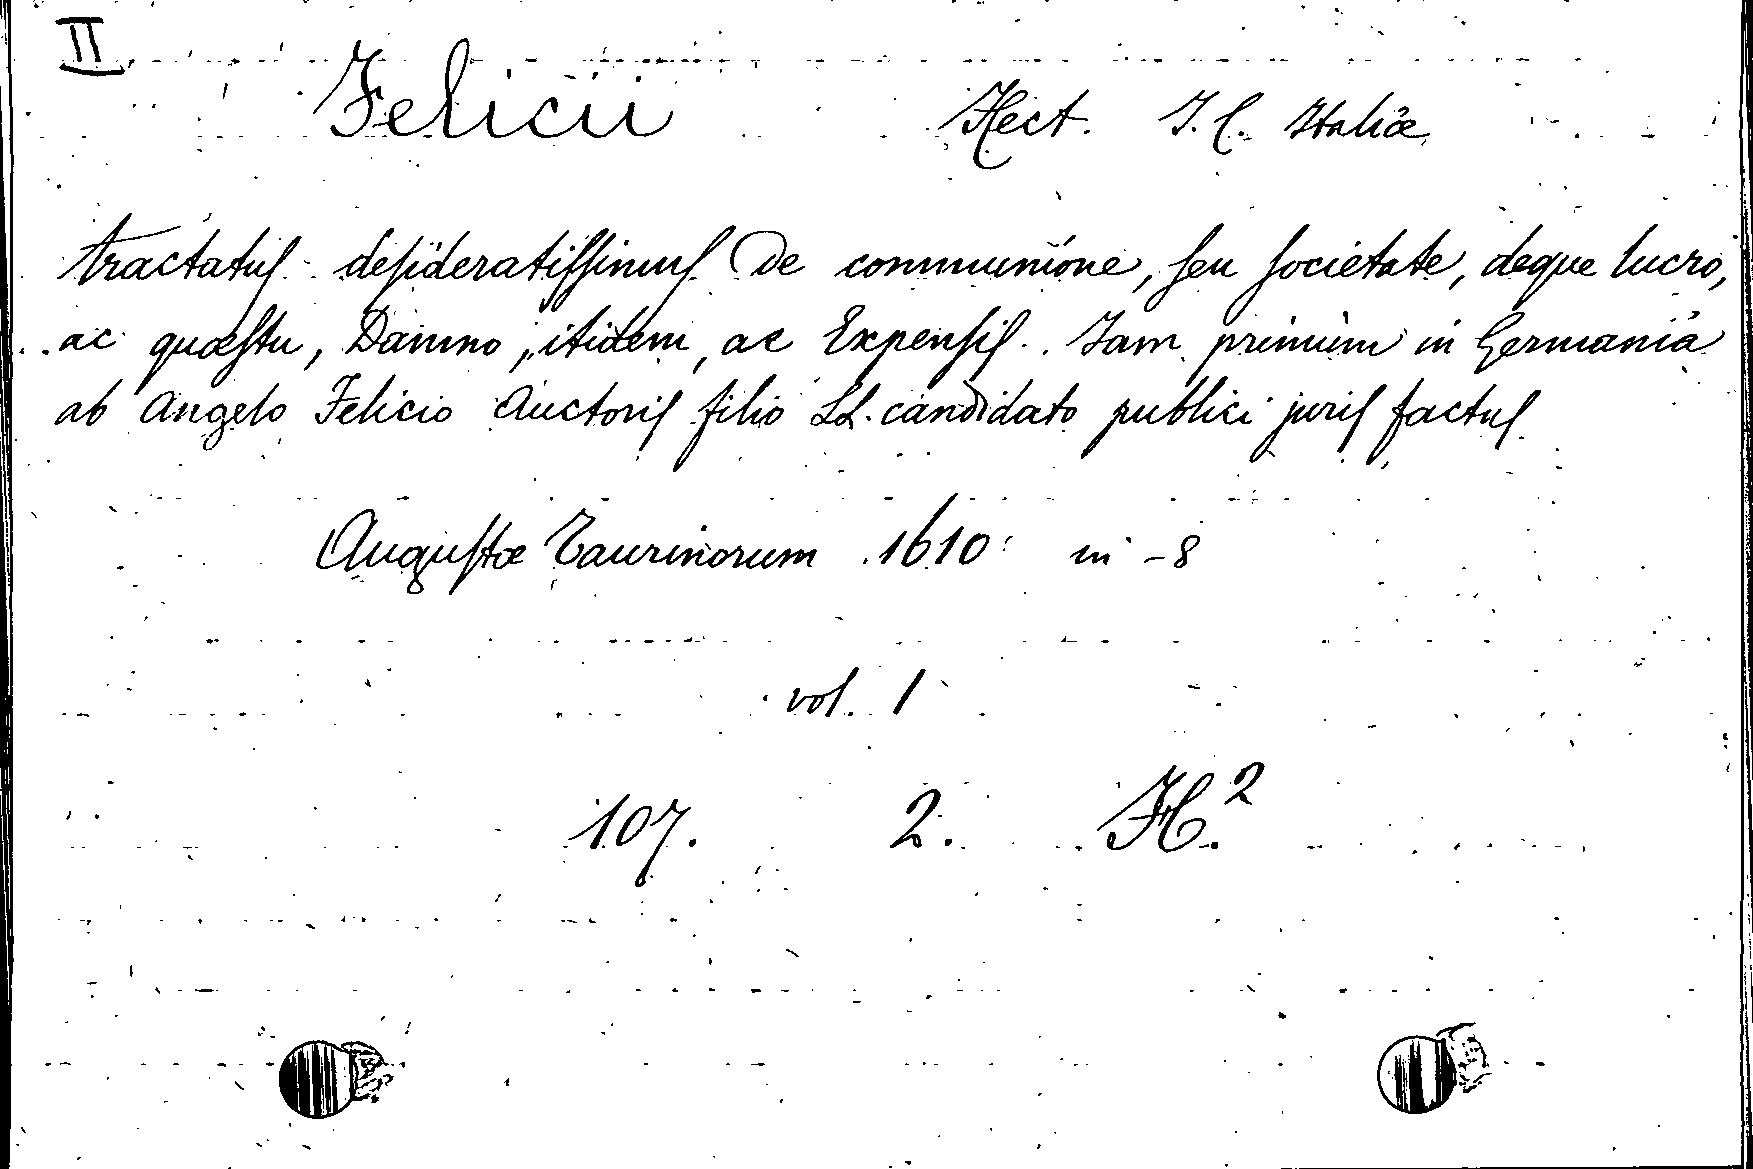 II
Felicii Hect. J. C. Italiæ
tractatuſ deſideratiſſimuſ De communione, ſeu ſocietate, deque lucro,
ac quæſtu, Damno, itidem, ac Expenſiſ. Jam primùm in Germania
ab Angelo Felicio Auctoriſ filio LL. candidato publici juriſ factuſ
Auguſtæ Taurinorum 1610 in -8
vol. 1
107. 2. H.²